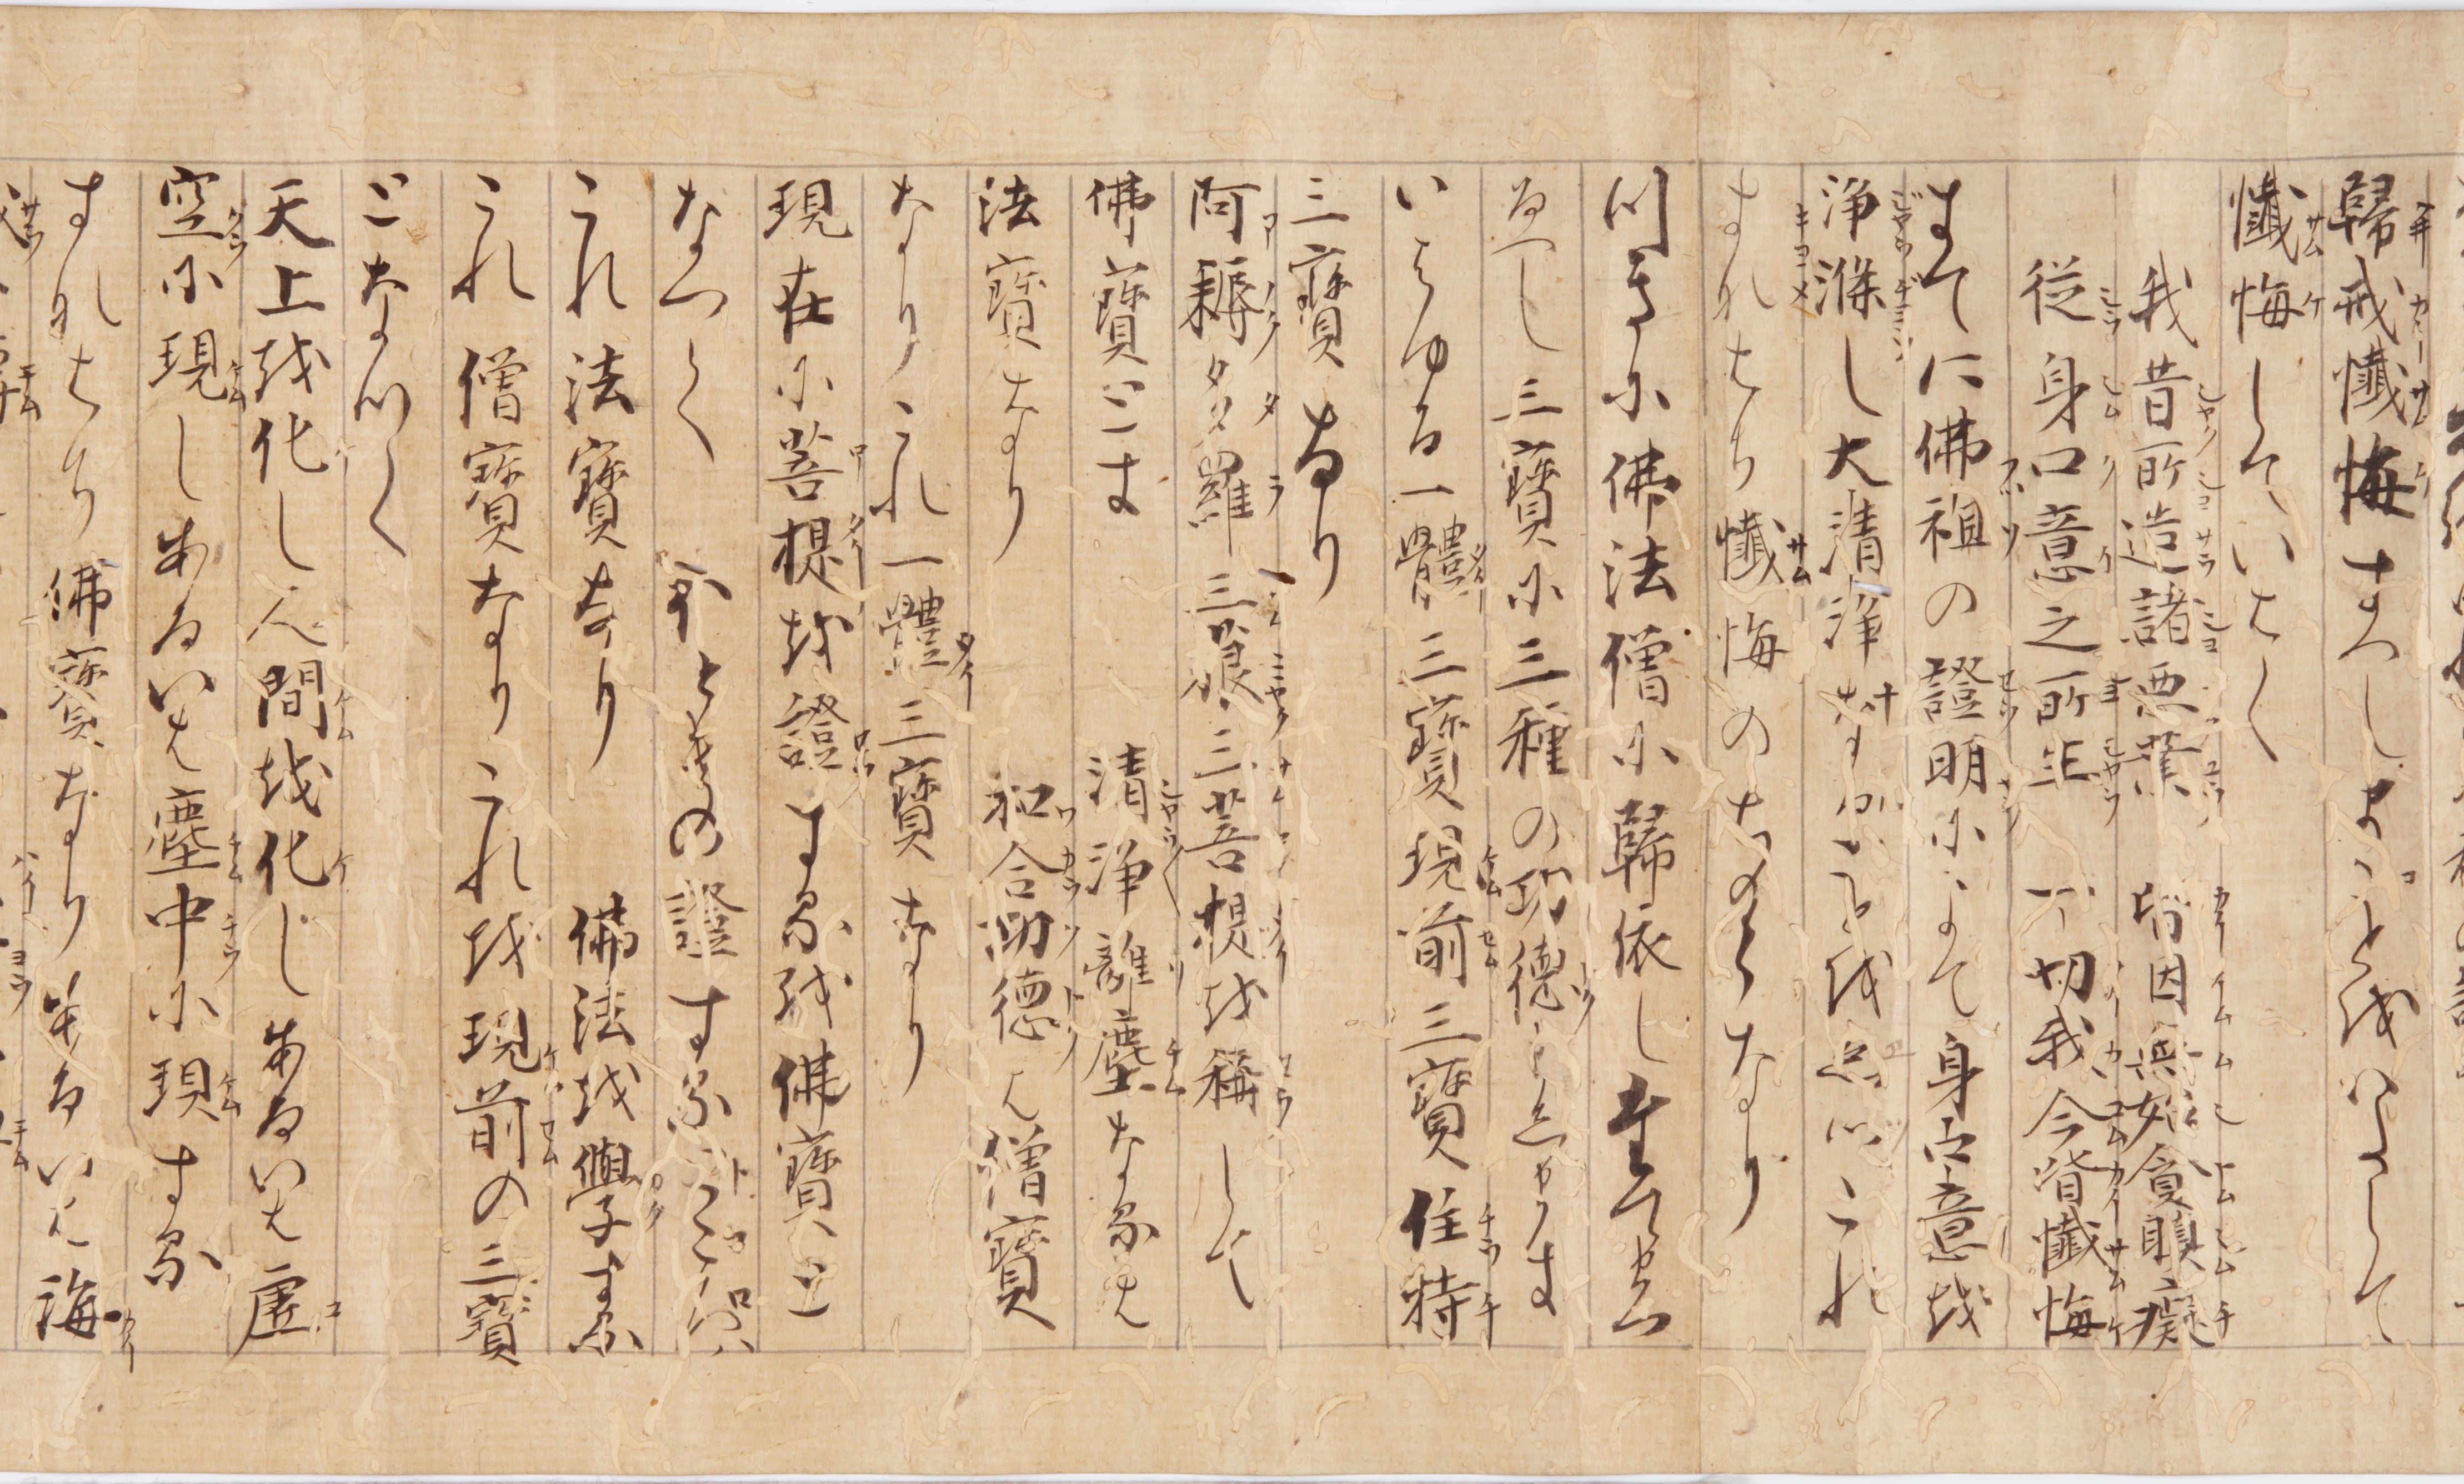 歸戒懺悔すへしまことをいたして
懺悔していはく
我昔所造諸惡業　皆因無始貪瞋癡
従身口意之所生　一切我今皆懺悔
すてに佛祖の證明によて身口意を
浄滌し大清浄なることをえつこれ
すなはち懺悔のちからなり
つきに佛法僧に歸依したてまつる
へし三寶に三種の功徳まします
いはゆる一體三寶現前三寶住持
三寶なり
阿耨多羅三藐三菩提を稱して
佛寶とす　清浄離塵なるは
法寶なり　和合功徳は僧寶
なりこれ一體三寶なり
現在に菩提を證するを佛寶と
なつく　ほとけの證するところは
これ法寶なり　佛法を學する
これ僧寶なりこれを現前の三寶
となつく
天上を化し人間を化しあるいは虚
空に現しあるいは塵中に現する
すなはち佛寶なりあるいは海